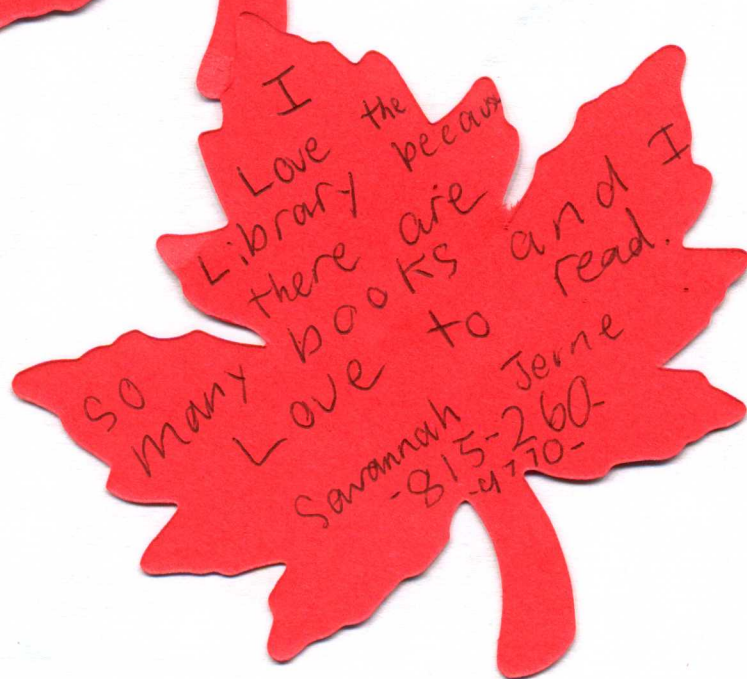 I
Love the
Library because
there are
so many books and I
Love to read.
Savannah Jerne
-815-260-
-4770-